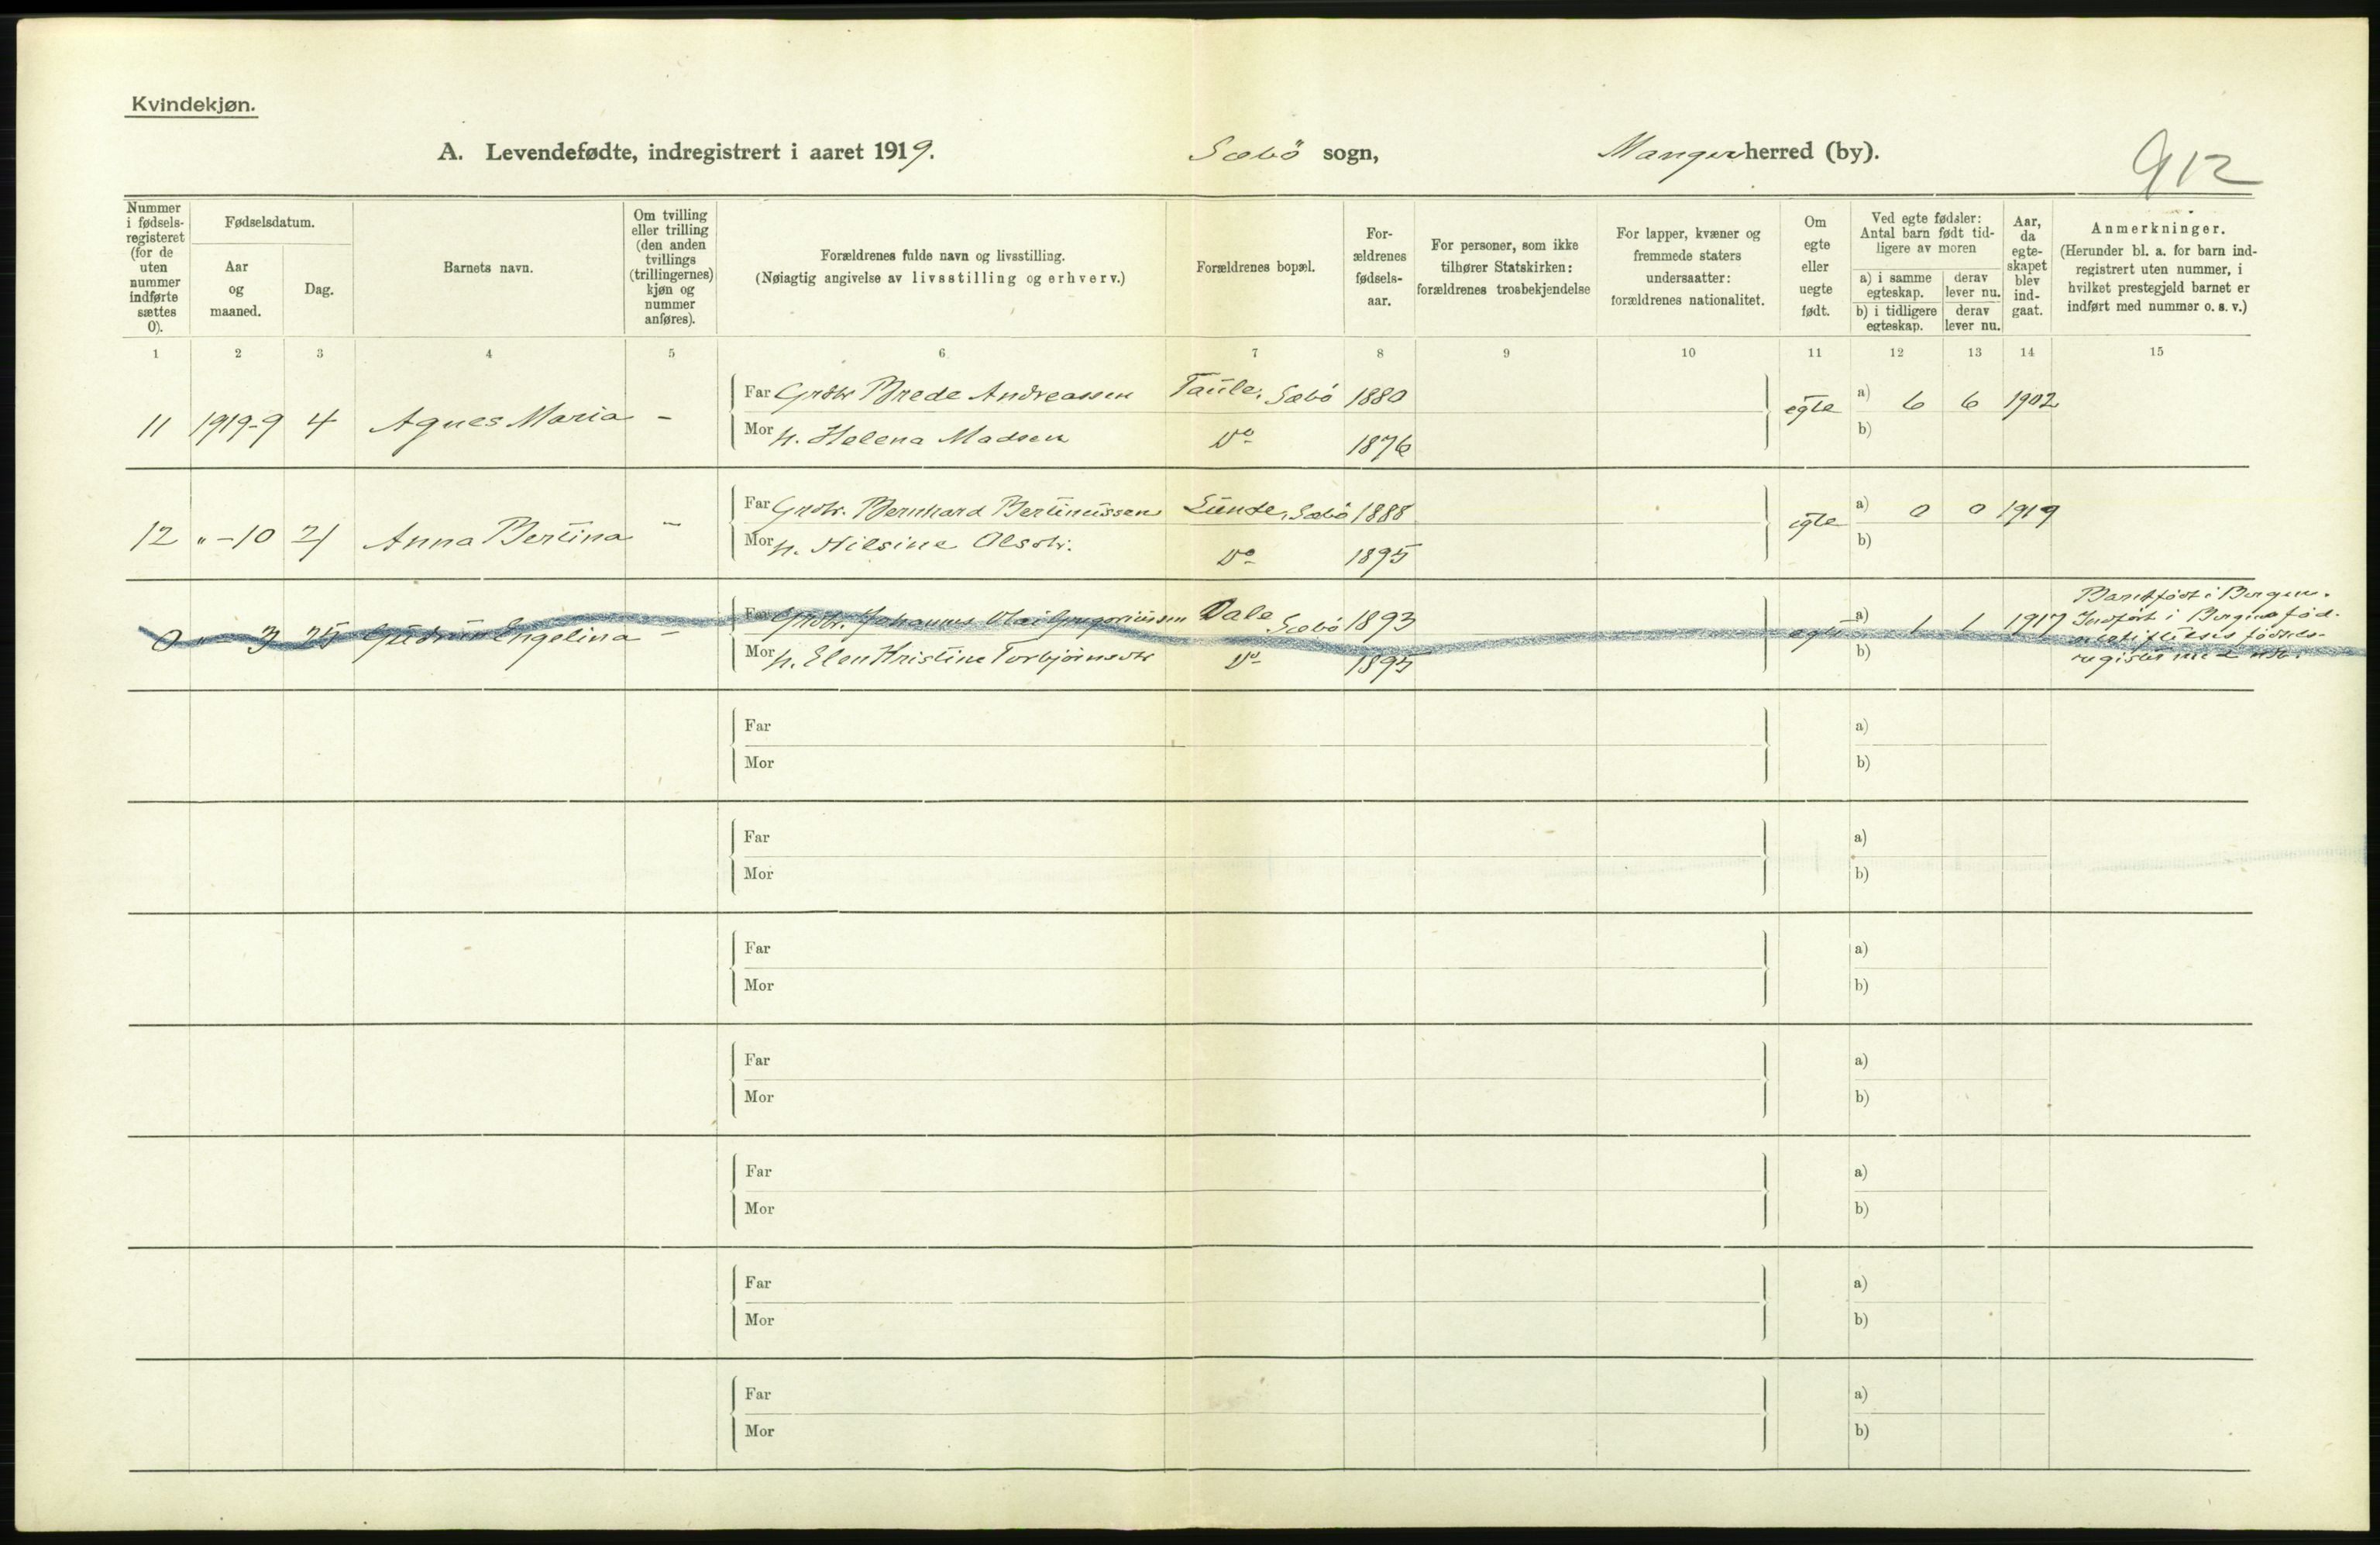 Kvindekjøn.
A. Levendefødte, indregistrert i aaret 1919. Sæbö sogn, Manger herred (by). 912
Nummer i fødsels-registeret (for de uten nummer indførte sættes 0).
Fødselsdatum.
Aar og maaned.
Dag.
Barnets navn.
Om tvilling eller trilling (den anden tvillings (trillingernes) kjøn og nummer anføres).
Forældrenes fulde navn og livsstilling.
(Nøiagtig angivelse av livsstilling og erhverv.)
Forældrenes bopæl.
For-ældrenes fødsels-aar.
For personer, som ikke tilhører Statskirken: forældrenes trosbekjendelse
For lapper, kvæner og fremmede staters undersaatter: forældrenes nationalitet.
Om egte eller uegte født.
Ved egte fødsler: Antal barn født tid-ligere av moren
a) i samme egteskap.
derav lever nu.
b) i tidligere egteskap.
derav lever nu.
Aar, da egte-skapet blev ind-gaat.
Anmerkninger.
(Herunder bl. a. for barn ind-registrert uten nummer, i hvilket prestegjeld barnet er indført med nummer o. s. v.)
1 2 3 4 5 6 7 8 9 10 11 12 13 14 15
Far Grdbr Brede Andreassen Taule, Sæbö 1880
11 1919-9 4 Agnes Maria - egte a) 6 6 1902
Mor h. Helena Madsen Do 1876 b)
Far Grdbr. Bernhard Bertinussen Lunde, Sæbö 1888
12 " - 10 21 Anna Bertina - egte a) 0 0 1919
Mor h. Nilsine Olsdtr. Do 1895 b)
Far Grdbr. Johannes Olai Gregoriussen Dale, Sæbö 1893
0 " - 3 25 Gudrun Engelina - egte a) 1 1 1917
Mor h. Elen Kristine Torbjörnsdtr Do 1895 b)
Barnet födt i Bergen.
Indfört i Bergens föd.
födsels-
register med nr.
Far a)
Mor b)
Far a)
Mor b)
Far a)
Mor b)
Far a)
Mor b)
Far a)
Mor b)
Far a)
Mor b)
Far a)
Mor b)